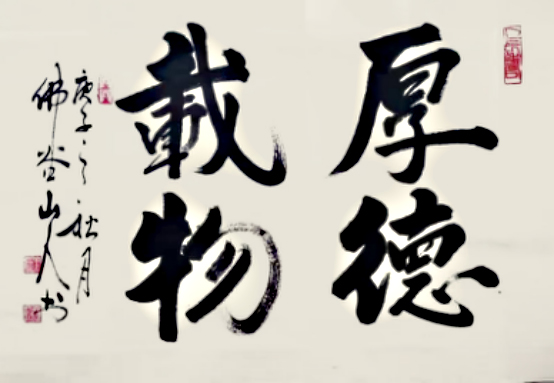 厚德
載物
庚子之秋月
佛谷山人书